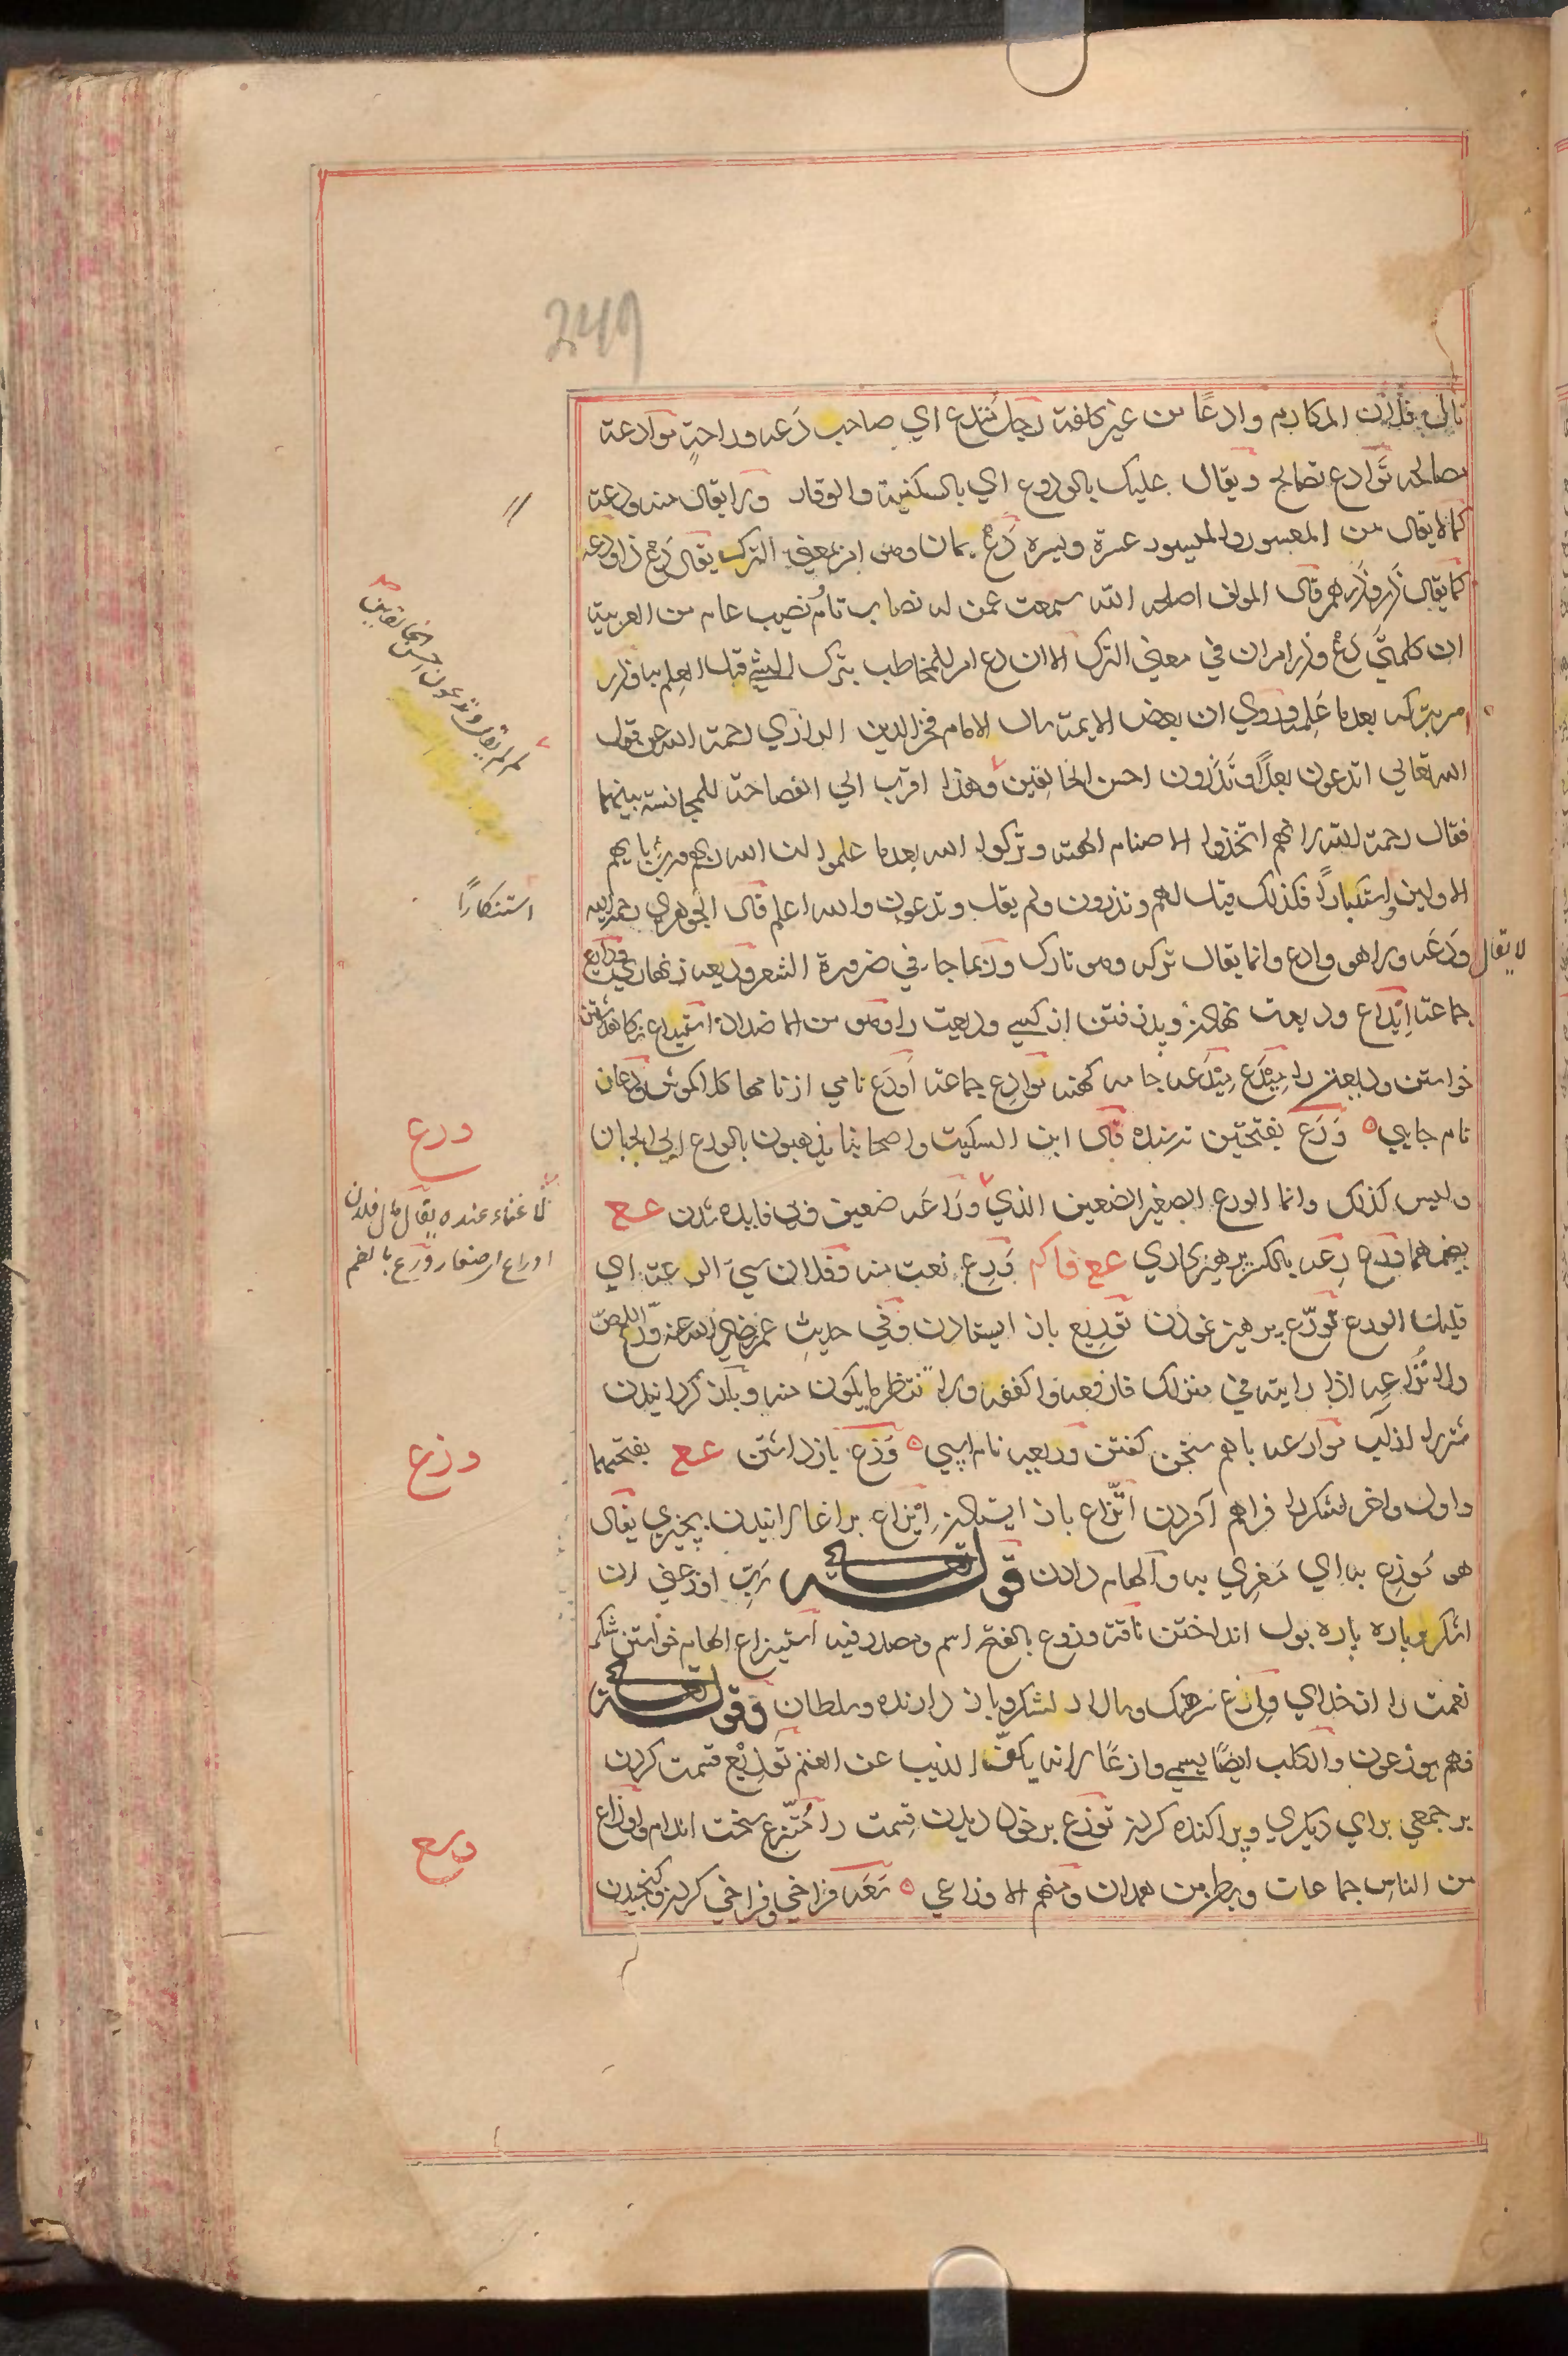 249
نال فلان المكارم وادعًا من غير كلفة رجل مُتدع اي صاحب دَعه وراحةٍ موادعة
مصالحه تَوادع تصالح ويقال عليك بالودوع اي بالسكنية والوقار ولا يقال منه ودعة
كمالا يقال من المعسور والميسور عسرة ويسره دَعْ بمان وهو امر بمعني الترك يقال دَعْ ذا ودعه
كما يقال ذَر وذَره قال المولف اصلحه الله سمعت عمن له نصاب تام نصيب عام من العربية
ان كلمتَي دَعْ وذر امران في معني الترك الا ان دع امر للمخاطب بترك الشي قبل العلم به وذر
امر بتركه بعد ما عَلِمه وروي ان بعض الايمة سال الامام فخر الدين الرازي رحمة الله عن قول
الله تعالي اتدعون بعلاً وتَذَرون احسن الخالقين وهذا اقرب الي الفصاحة للمجانسة بينهما
فقال رحمة الله لانهم اتخذوا الاصنام الهة وتركوا الله بعد ما علموا ان الله ربهم ورب ابايهم
الاولين استكباراً فكذلك قيل لهم وتذرون ولم يقل وتدعون والله اعلم قال الجوهري رحمه الله
لا يقال
ودَعَه ولا هو وادع وانما يقال تركه وهو تارك وربما جا في ضرورة الشعر وديعه زنهاري ودايع
جماعت اِيْداع وديعت نهادن وپذرفتن از كسي وديعت را وهو من الاضداد استيداع نكاهداشتن
خواستن وديعت را مِيْدَع مِيْدَعه جامه كهنه موادع جماعت اَودَع نامي از نامها كلاكموش ودعان
نام جايي وَرَع بفتحتين ترسنده قال ابن السكيت واصحابنا يذهبون بالورع الي الجبان
وليس كذلك وانما الورع الصغير الضعيف الذي وَرَاعَه ضعيف وبي فايده شدن عـع
بضمهما وَرع رِعَه بالكسر پرهيزكاري عع فاكم وَرِع نعت منه وفلان سيّ الرعة اي
قليل الورع تَورّع پرهيز نمودن توريع باز ايستادن وفي حديث عمر رضي الله عنه ورّع اللص
ولا تُراعِه اذا رايته في منزلك فادفعه واكففه ولا تنتظر ما يكون منه وباز كردانيدن
شتر از آب موارعه باهم سخن كفتن وريعه نام اسپي وَزَع بازداشتن عـع بفتحهما
واول واخر لشكر را فراهم آوردن اتّزاع باز ايستادن اِيْزاع براغالانيدن بچيزي يقال
هو مُوزَع به اي مُغرِي به والهام دادن قوله تعالي رَبّ اوزعني ان
اشكر وپاره پاره بول انداختن ناقه وزوع بالفتح اسم ومصدر فيه استيزاع الهام خواستن شكر
نعمت را از خداي وازع سرهنك وسالار لشكر وباز دارنده وسلطان وقوله تعالي
فهم يوزعون والكلب ايضاً يسمي وازعًا لانه يكفّ الذيب عن الغنم تَوْزِيْع قسمت كردن
بر جمعي براي ديكري وپراكنده كردن توزع بر خود ديدن قسمت را مُتّزع سخت اندام واوزاع
من الناس جماعات وبطن من همدان ومنهم الاوزاعي سَعَه فراخي وفراخي كردن وكنجيدن
لم لم يقل وتدعون احسن الخالقين
استنكارًا
ورع
لا غناء عنده يقال مال فلان
اوراع اي صغار ورُع بالضم
وزع
وسع